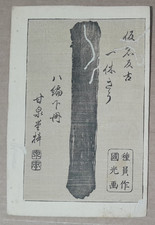 仮名反古
一休さう
種員作
國光画
八編下冊
甘泉堂梓